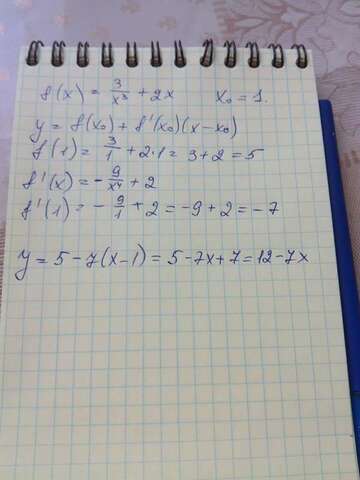 f(x) = 3/x³ + 2x    x₀ = 1.
y = f(x₀) + f'(x₀)(x - x₀)
f(1) = 3/1 + 2·1 = 3 + 2 = 5
f'(x) = - 9/x⁴ + 2
f'(1) = - 9/1 + 2 = -9 + 2 = -7
y = 5 - 7(x - 1) = 5 - 7x + 7 = 12 - 7x